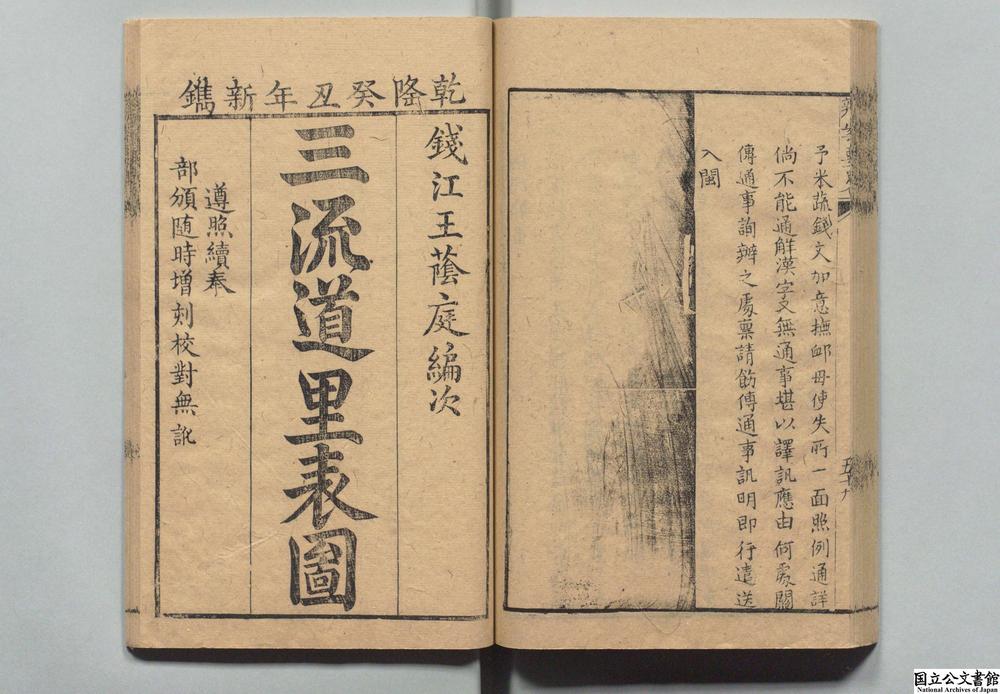 予米蔬錢文加意撫卹毋使失所一面照例通詳
倘不能通解漢字又無通事堪以譯訊應由何處關
傳通事詢辦之處稟請飭傳通事訊明即行遣送
入閩
五十九
乾隆癸丑年新鐫
錢江王蔭庭編次
三流道里表圖
遵照續奉
部頒随時增刻校對無訛
国立公文書館
National Archives of Japan